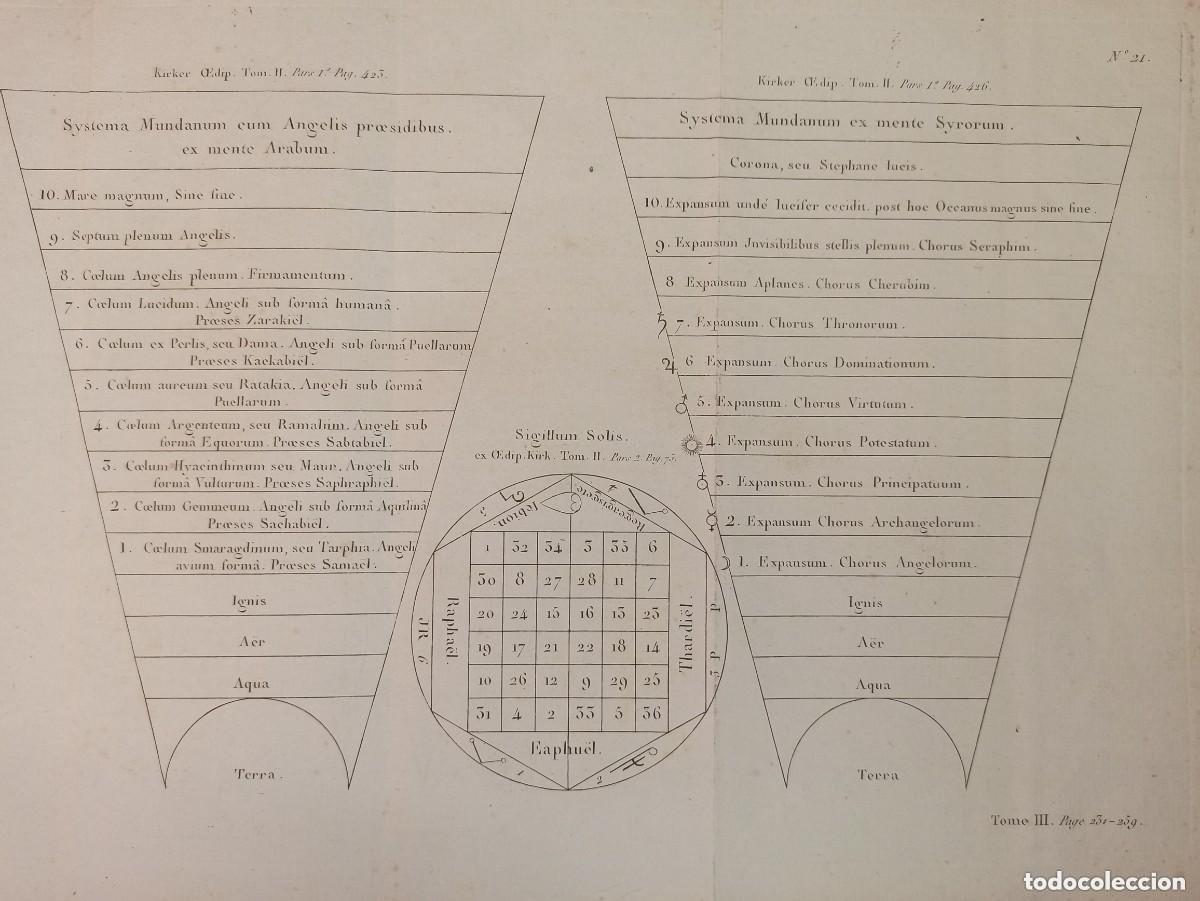 Nº 21.
Kirker Œdip. Tom. II. Pars 1ª Pag. 423.
Systema Mundanum cum Angelis præsidibus.
ex mente Arabum.
10. Mare magnum, Sine fine.
9. Septum plenum Angelis.
8. Cœlum Angelis plenum. Firmamentum.
7. Cœlum Lucidum. Angeli sub formâ humanâ.
Præses Zarakiël.
6. Cœlum ex Perlis, seu Dama. Angeli sub formâ Puellarum
Præses Kackabiël.
5. Cœlum aureum seu Ratakia. Angeli sub formâ
Puellarum.
4. Cœlum Argenteum, seu Ramalum. Angeli sub
formâ Equorum. Præses Sabtabiël.
3. Cœlum Hyacinthinum seu Maur. Angeli sub
formâ Vulturum. Præses Saphraphiël.
2. Cœlum Gemmeum. Angeli sub formâ Aquilinâ
Præses Sachabiël.
1. Cœlum Smaragdinum, seu Tarphia. Angeli
avium formâ. Præses Samael.
Ignis
Aër
Aqua
Terra.
Sigillum Solis.
ex Œdip. Kirk. Tom. II. Pars 2. Pag. 75.
3
Iebion:
Regeagisgete.
1 32 34 3 35 6
30 8 27 28 11 7
20 24 15 16 13 23
19 17 21 22 18 14
10 26 12 9 29 25
31 4 2 33 5 36
Raphaël.
JR 6
Thardiël.
5 P P
Eaphuël.
1
2
Kirker Œdip. Tom. II. Pars 1ª Pag. 426.
Systema Mundanum ex mente Syrorum.
Corona, seu Stephane lucis.
10. Expansum undé lucifer cecidit. post hoc Oceanus magnus sine fine.
9. Expansum Jnvisibilibus stellis plenum. Chorus Seraphim.
8 Expansum Aplanes. Chorus Cherubim.
♄ 7. Expansum. Chorus Thronorum.
♃ 6 Expansum. Chorus Dominationum.
♂ 5. Expansum. Chorus Virtutum.
4. Expansum. Chorus Potestatum.
3. Expansum. Chorus Principatuum.
2. Expansum Chorus Archangelorum.
1. Expansum. Chorus Angelorum.
Ignis
Aër
Aqua
Terra
Tomo III. Page 231-239.
todocoleccion